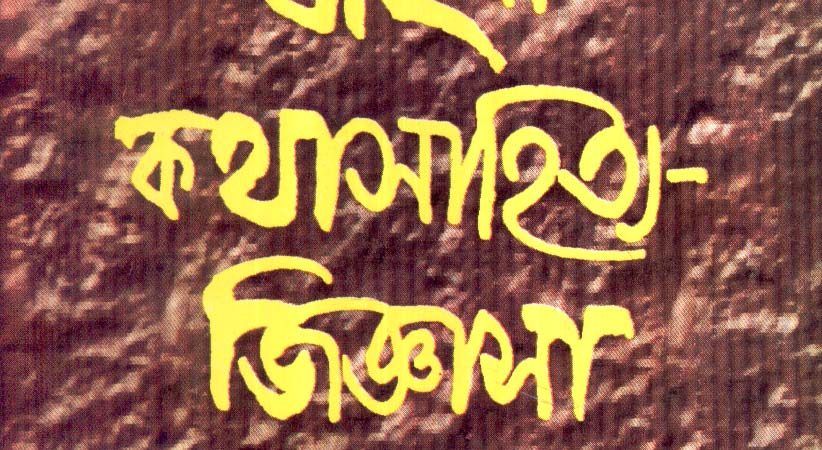 কথাসাহিত্য-
জিজ্ঞাসা